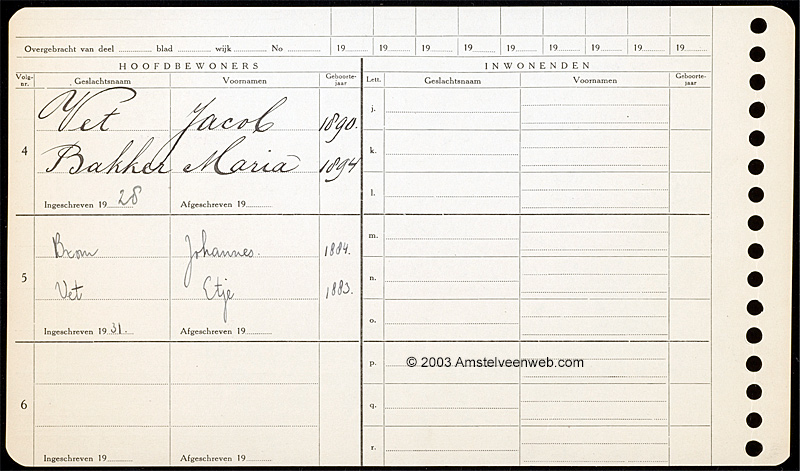 Overgebracht van deel blad wijk No 19 19 19 19 19 19 19 19 19
HOOFDBEWONERS
INWONENDEN
Volg-nr. Geslachtsnaam Voornamen Geboorte-jaar
Lett. Geslachtsnaam Voornamen Geboorte-jaar
4
Vet Jacob 1890.
Bakker Maria 1894
Ingeschreven 1928 Afgeschreven 19
j.
k.
l.
5
Brom Johannes. 1884.
Vet Etje 1883.
Ingeschreven 1931. Afgeschreven 19
m.
n.
o.
6
Ingeschreven 19 Afgeschreven 19
p.
q.
r.
© 2003 Amstelveenweb.com